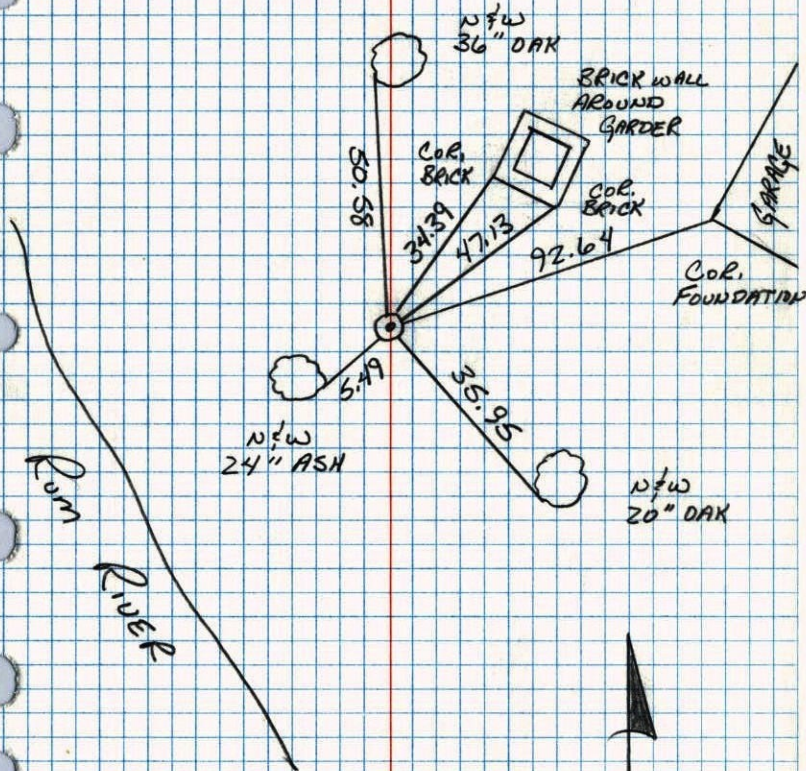 N & W
36" OAK
BRICK WALL
AROUND
GARDER
COR.
BRICK
COR.
BRICK
GARAGE
50.58
34.39
47.13
92.64
COR.
FOUNDATION
5.49
35.95
N & W
24" ASH
N & W
20" OAK
RUM
RIVER